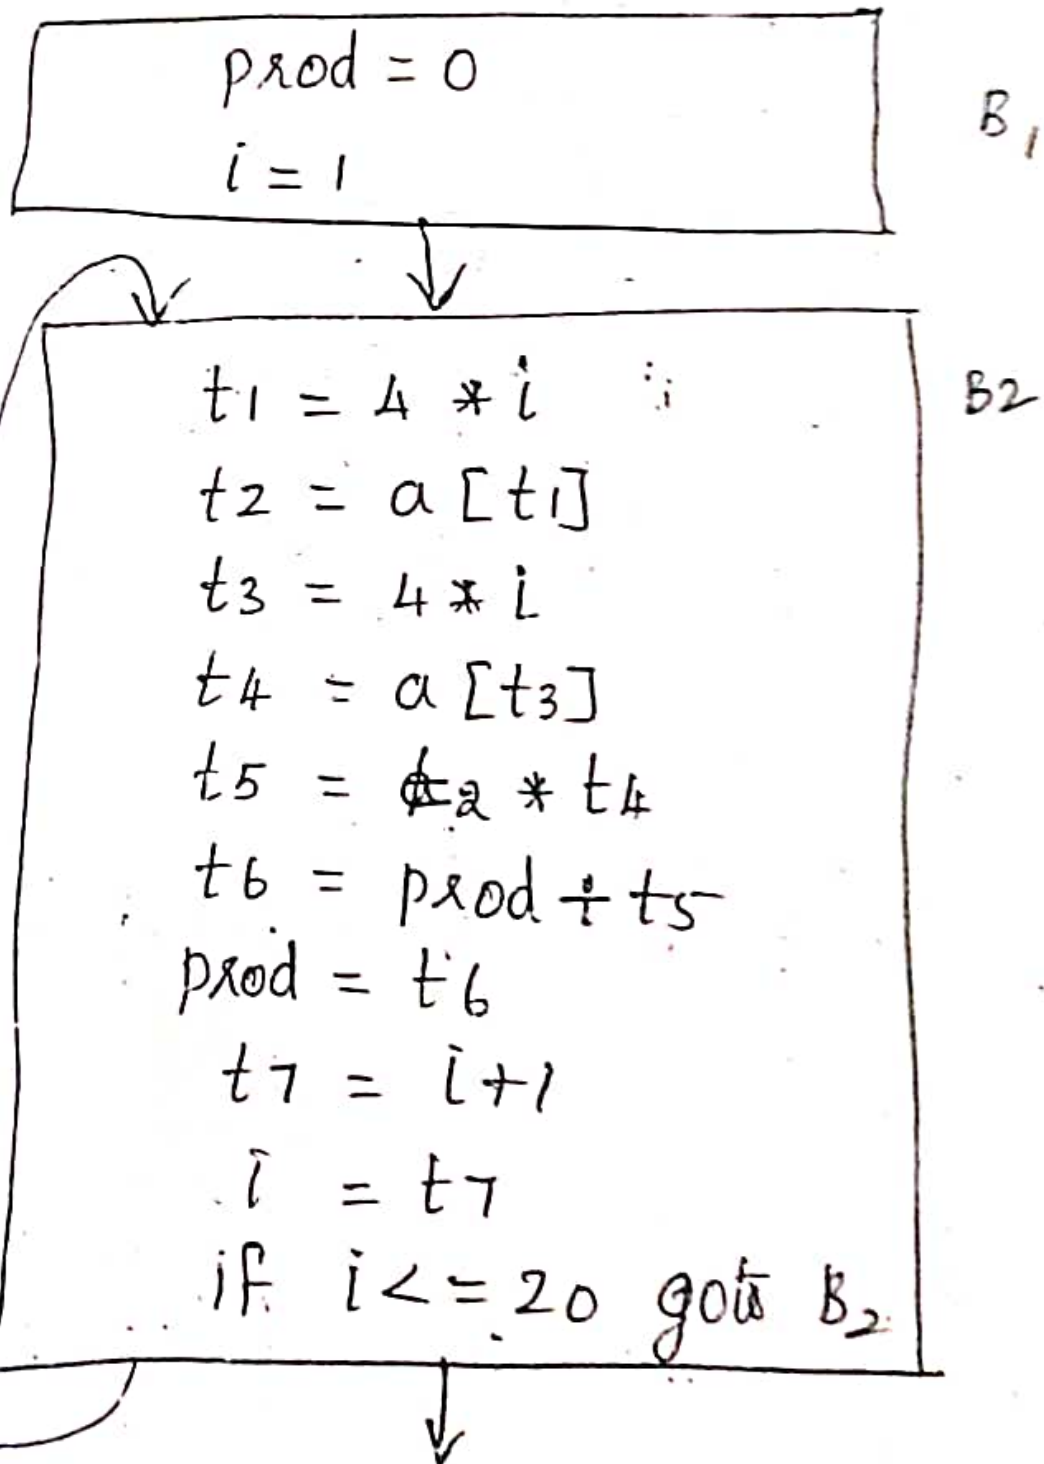 prod = 0
i = 1
B1
B2
t1 = 4 * i
t2 = a [t1]
t3 = 4 * i
t4 = a [t3]
t5 = t2 * t4
t6 = prod + t5
prod = t6
t7 = i+1
i = t7
if i <= 20 goto B2